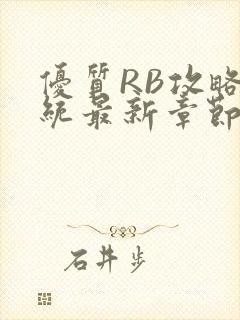 優質RB攻略
統最新章節
石井步